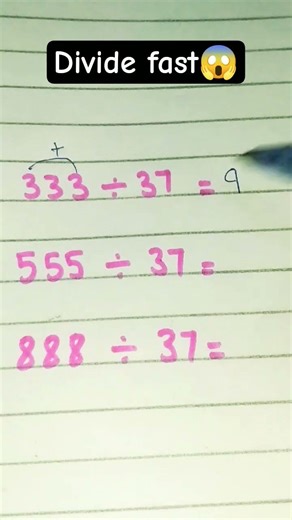 Divide fast😱
+
333 ÷ 37 = 9
555 ÷ 37 =
888 ÷ 37 =